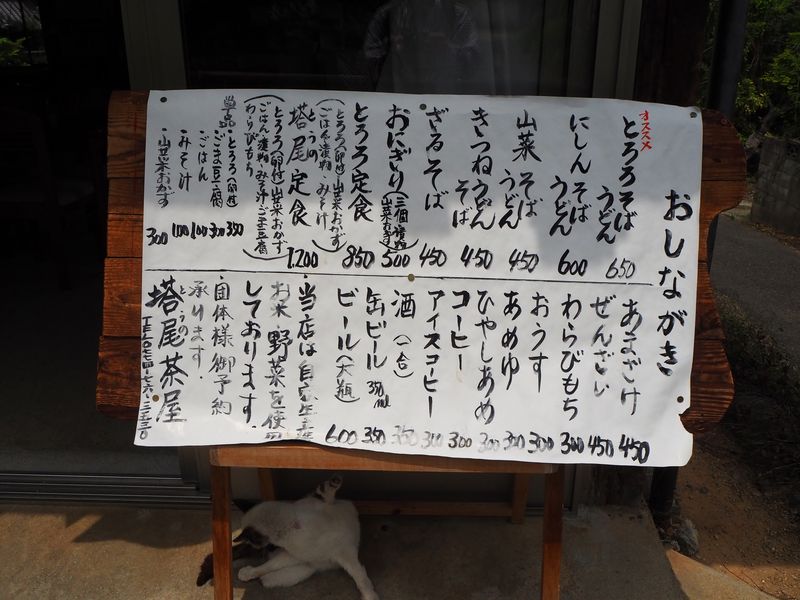 おしながき
オススメ
とろろそば
うどん 650
にしんそば
うどん 600
山菜そば
うどん 450
きつねうどん
そば 450
ざるそば 450
おにぎり(三個 漬物 500
とろろ定食 850
(とろろ(卵付)山菜おかず
ごはん・漬物・みそ汁)
塔尾定食 1,200
とうの
(とろろ(卵付)山菜おかず
ごはん 漬物 みそ汁 ごま豆腐
わらびもち)
単品
・とろろ(卵付) 350
・ごま豆腐 300
・ごはん 100
・みそ汁 100
・山菜おかず 300
あまざけ 450
ぜんざい 450
わらびもち 300
おうす 300
あめゆ 300
ひやしあめ 300
コーヒー 300
アイスコーヒー
酒(一合) 350
缶ビール 350ml 350
ビール(大瓶) 600
・当店は自家生産
お米・野菜を使用
しております
・団体様御予約
承ります・
とうの
塔尾茶屋